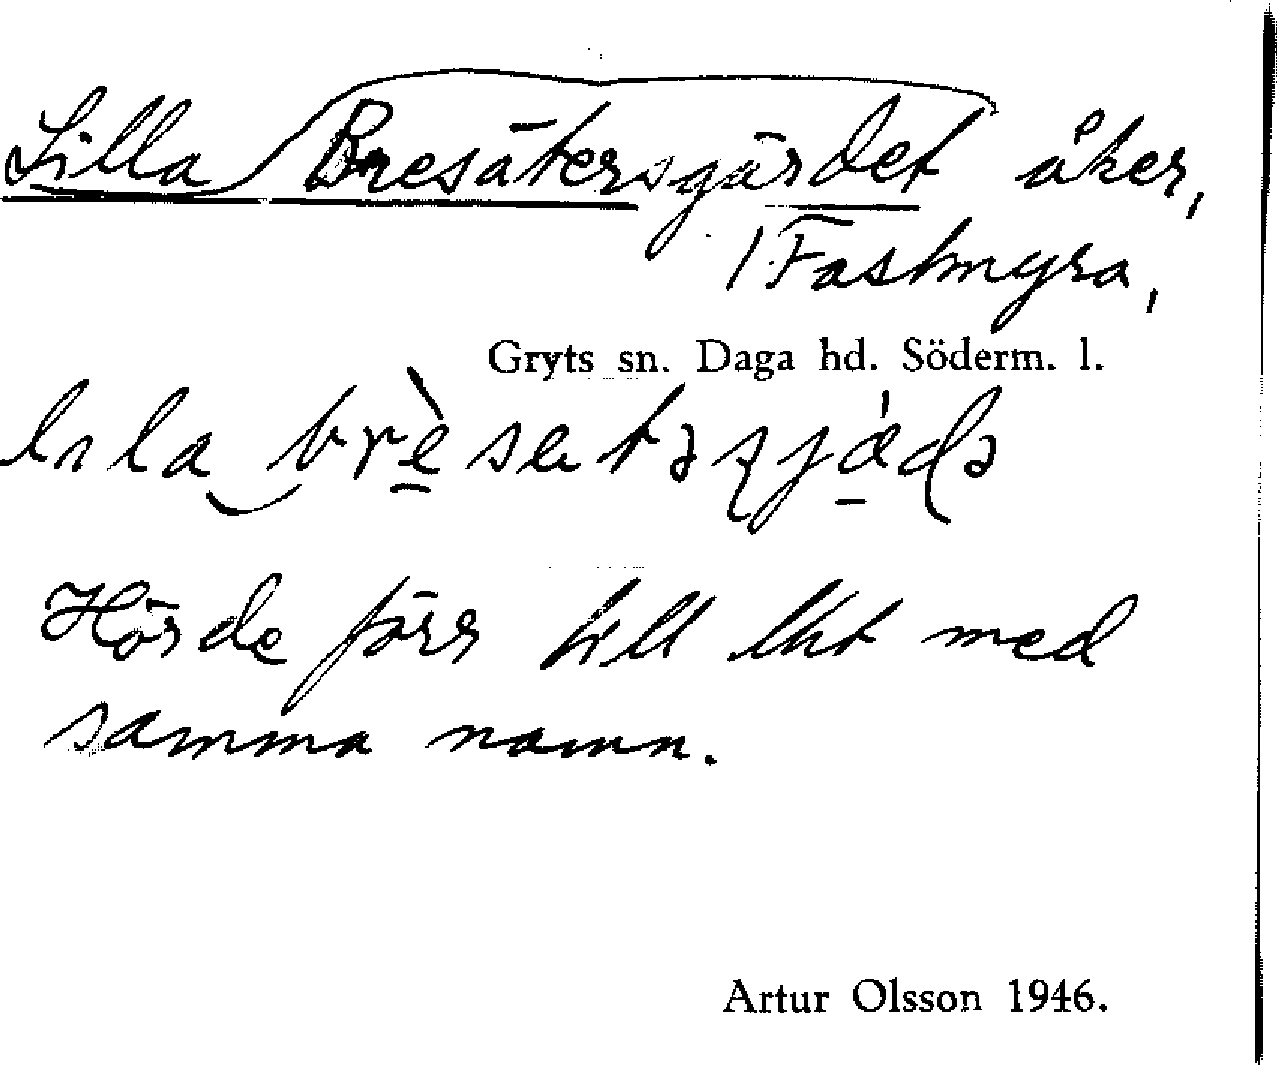 Lilla Bresätersgärdet åker,
1 Fastmyra,
Gryts sn. Daga hd. Söderm. l.
Hörde förr till lht med
samma namn.
Artur Olsson 1946.